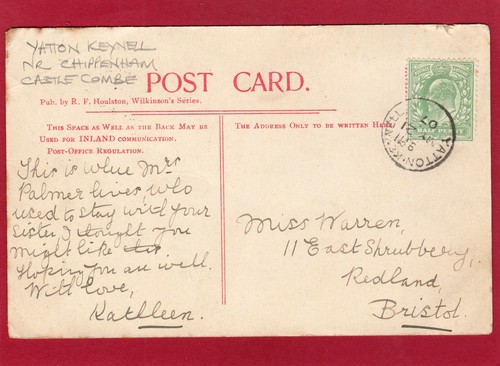 YATTON KEYNELL
NR CHIPPENHAM
CASTLE COMBE
POST CARD.
Pub. by R. F. Houlston, Wilkinson's Series.
THIS SPACE AS WELL AS THE BACK MAY BE
USED FOR INLAND COMMUNICATION.
POST-OFFICE REGULATION.
THE ADDRESS ONLY TO BE WRITTEN HERE.
HALF PENNY
YATTON-KEYNELL
MY 31
07
This is where Mrs
Palmer lives, who
used to stay with your
sister, I thought you
might like this
Hoping you are well.
With love,
Kathleen.
Miss Warren,
11 East Shrubbery,
Redland,
Bristol.